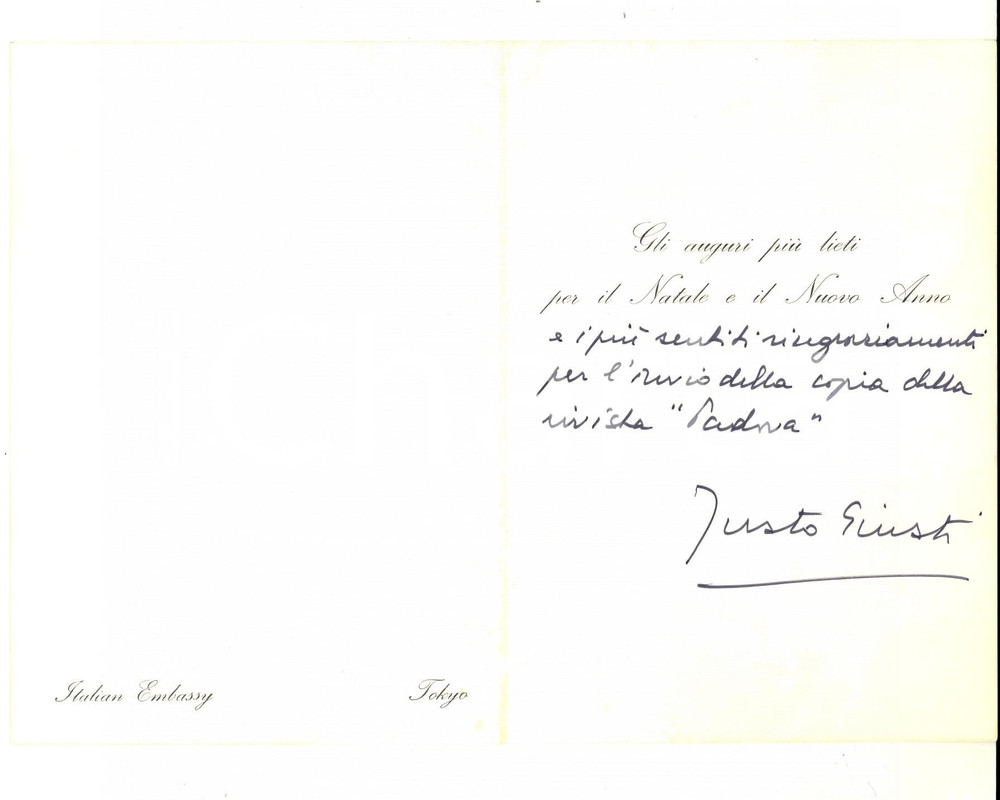 Gli auguri più lieti
per il Natale e il Nuovo Anno
e i più sentiti ringraziamenti
per l'invio della copia della
rivista "Padova"
Justo Giusti
Italian Embassy
Tokyo